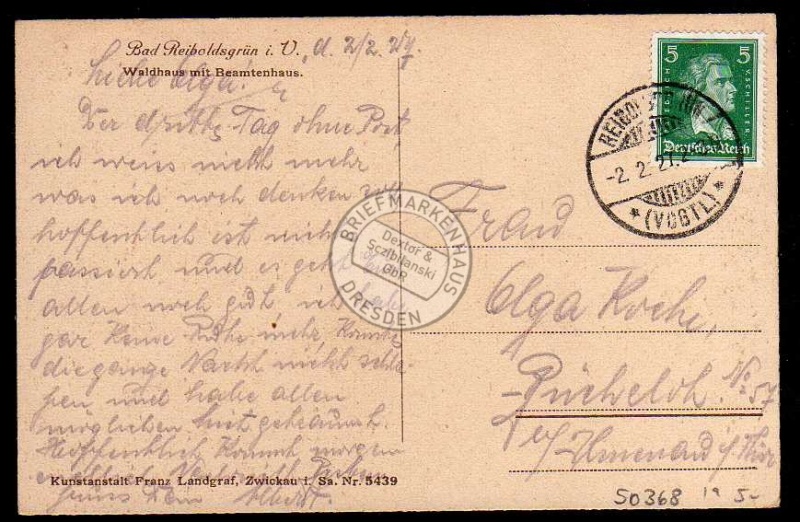 Bad Reiboldsgrün i. V., d. 2/2. 27.
Waldhaus mit Beamtenhaus.
Liebe Olga!
Der dritte Tag ohne Post
ich weiss nicht mehr
was ich noch denken soll
hoffentlich ist nichts
passiert und es geht
allen noch gut, ich habe
gar keine Ruhe mehr, konnte
die ganze Nacht nicht schla-
fen und habe allen
möglichen Mist geträumt.
Hoffentlich kommt morgen
endlich Nachricht.
Gruss Dein Albert.
Kunstanstalt Franz Landgraf, Zwickau i. Sa. Nr. 5439
5 5
FR. V. SCHILLER
Deutsches Reich
REIBOLDSGRÜN
-2. 2. 27.
* (VOGTL) *
BRIEFMARKENHAUS
Dextor &
Scibilanski
GbR
DRESDEN
Frau
Olga Koch,
Bücheloh No 57
b/ Ilmenau i/ Thür
50368 19 5-